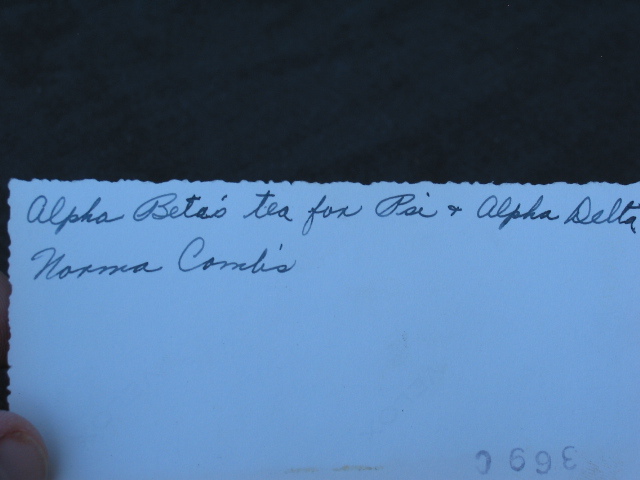 Alpha Beta's tea for Psi + Alpha Delta
Norma Comb's
0 6 9 3